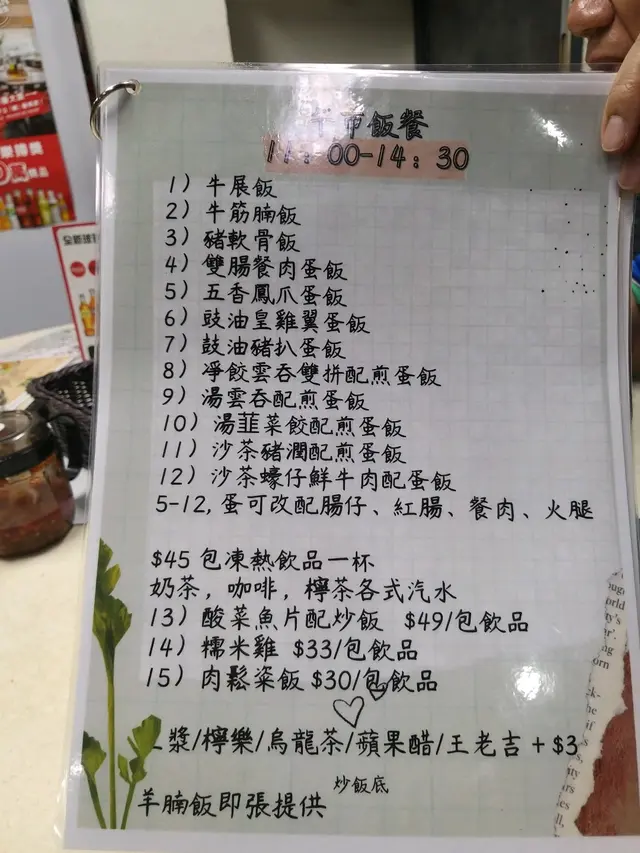 飯餐
11：00-14：30
1）牛展飯
2）牛筋腩飯
3）豬軟骨飯
4）雙腸餐肉蛋飯
5）五香鳳爪蛋飯
6）豉油皇雞翼蛋飯
7）鼓油豬扒蛋飯
8）凈餃雲吞雙拼配煎蛋飯
9）湯雲吞配煎蛋飯
10）湯韮菜餃配煎蛋飯
11）沙茶豬潤配煎蛋飯
12）沙茶蠔仔鮮牛肉配蛋飯
5-12, 蛋可改配腸仔、紅腸、餐肉、火腿
$45 包凍熱飲品一杯
奶茶，咖啡，檸茶各式汽水
13）酸菜魚片配炒飯 $49/包飲品
14）糯米雞 $33/包飲品
15）肉鬆粢飯 $30/包飲品
漿/檸樂/烏龍茶/蘋果醋/王老吉 + $3
炒飯底
羊腩飯即張提供